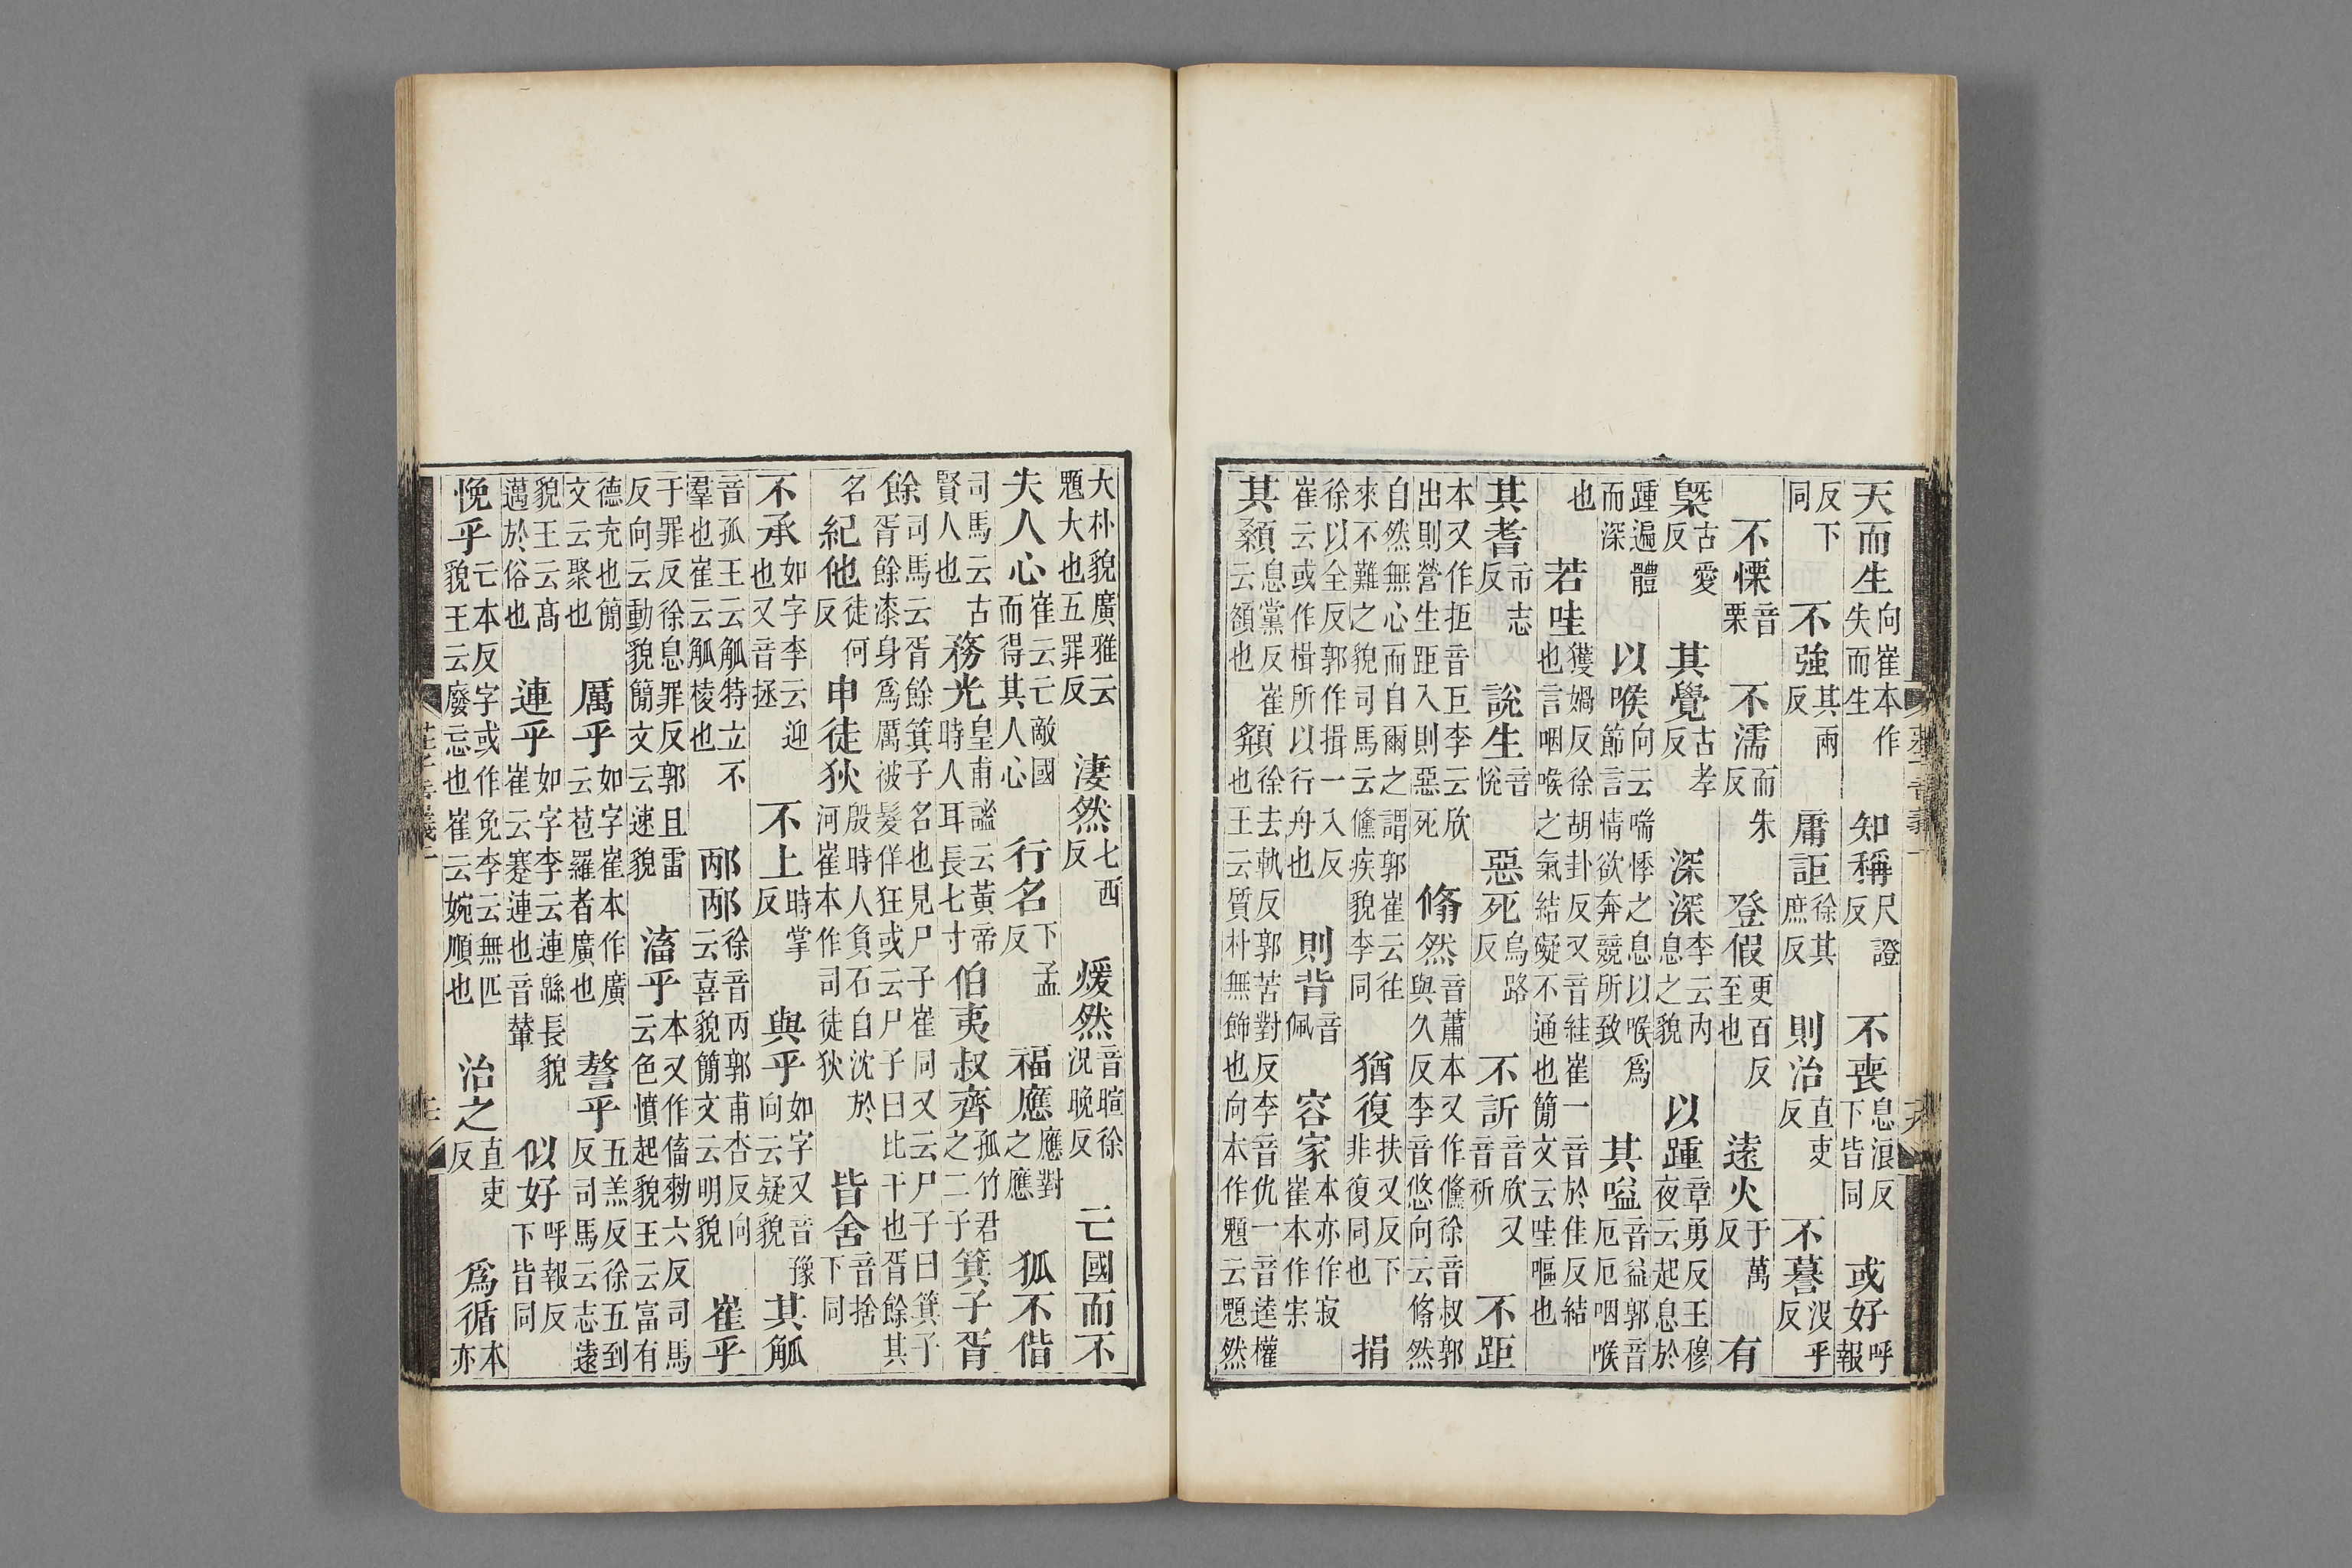 天而生向崔本作失而生 知稱尺證反 不喪息浪反下皆同 或好呼報
反下同 不強其兩反 庸詎徐其庶反 則治直吏反 不謩沒乎反
不慄音栗 不濡而朱反 登假更百反至也 遠火于萬反 有
槩古愛反 其覺古孝反 深深李云內息之貌 以踵章勇反王穆夜云起息於
踵遍體而深 以喉向云喘悸之息以喉爲節言情欲奔競所致 其嗌音益郭音厄厄咽喉
也 若哇獲媧反徐胡卦反又音絓崔一音於佳反結也言咽喉之氣結礙不通也簡文云哇嘔也
其耆市志反 說生音悅 惡死烏路反 不訢音欣又音祈 不距
本又作拒音巨李云欣出則營生距入則惡死 翛然音蕭本又作儵徐音叔郭與久反李音悠向云翛然
自然無心而自爾之謂郭崔云往來不難之貌司馬云儵疾貌李同 猶復扶又反下非復同也 捐
徐以全反郭作揖一入反崔云或作楫所以行舟也 則背音佩 容家本亦作寂崔本作宗
其顙息黨反崔云額也 頯徐去軌反郭苦對反李音仇一音逵權也王云質朴無飾也向本作䫥云䫥然
大朴貌廣雅云䫥大也五罪反 淒然七西反 煖然音暄徐況晚反 亡國而不
失人心崔云亡敵國而得其人心 行名下孟反 福應應對之應 狐不偕
司馬云古賢人也 務光皇甫謐云黃帝時人耳長七寸 伯夷叔齊孤竹君之二子 箕子胥
餘司馬云胥餘箕子名也見尸子崔同又云尸子曰箕子胥餘漆身爲厲被髮佯狂或云尸子曰比干也胥餘其
名 紀他徒何反 申徒狄殷時人負石自沈於河崔本作司徒狄 皆舍音捨下同
不承如字李云迎也又音拯 不上時掌反 與乎如字又音豫向云疑貌 其觚
音孤王云觚特立不羣也崔云觚棱也 邴邴徐音丙郭甫杏反向云喜貌簡文云明貌 崔乎
于罪反徐息罪反郭且雷反向云動貌簡文云速貌 滀乎本又作傗勑六反司馬云色憤起貌王云富有
德充也簡文云聚也 厲乎如字崔本作廣云苞羅者廣也 謷乎五羔反徐五到反司馬云志遠
貌王云高邁於俗也 連乎如字李云連緜長貌崔云蹇連也音輦 似好呼報反下皆同
悗乎亡本反字或作免李云無匹貌王云廢忘也崔云婉順也 治之直吏反 爲循本亦